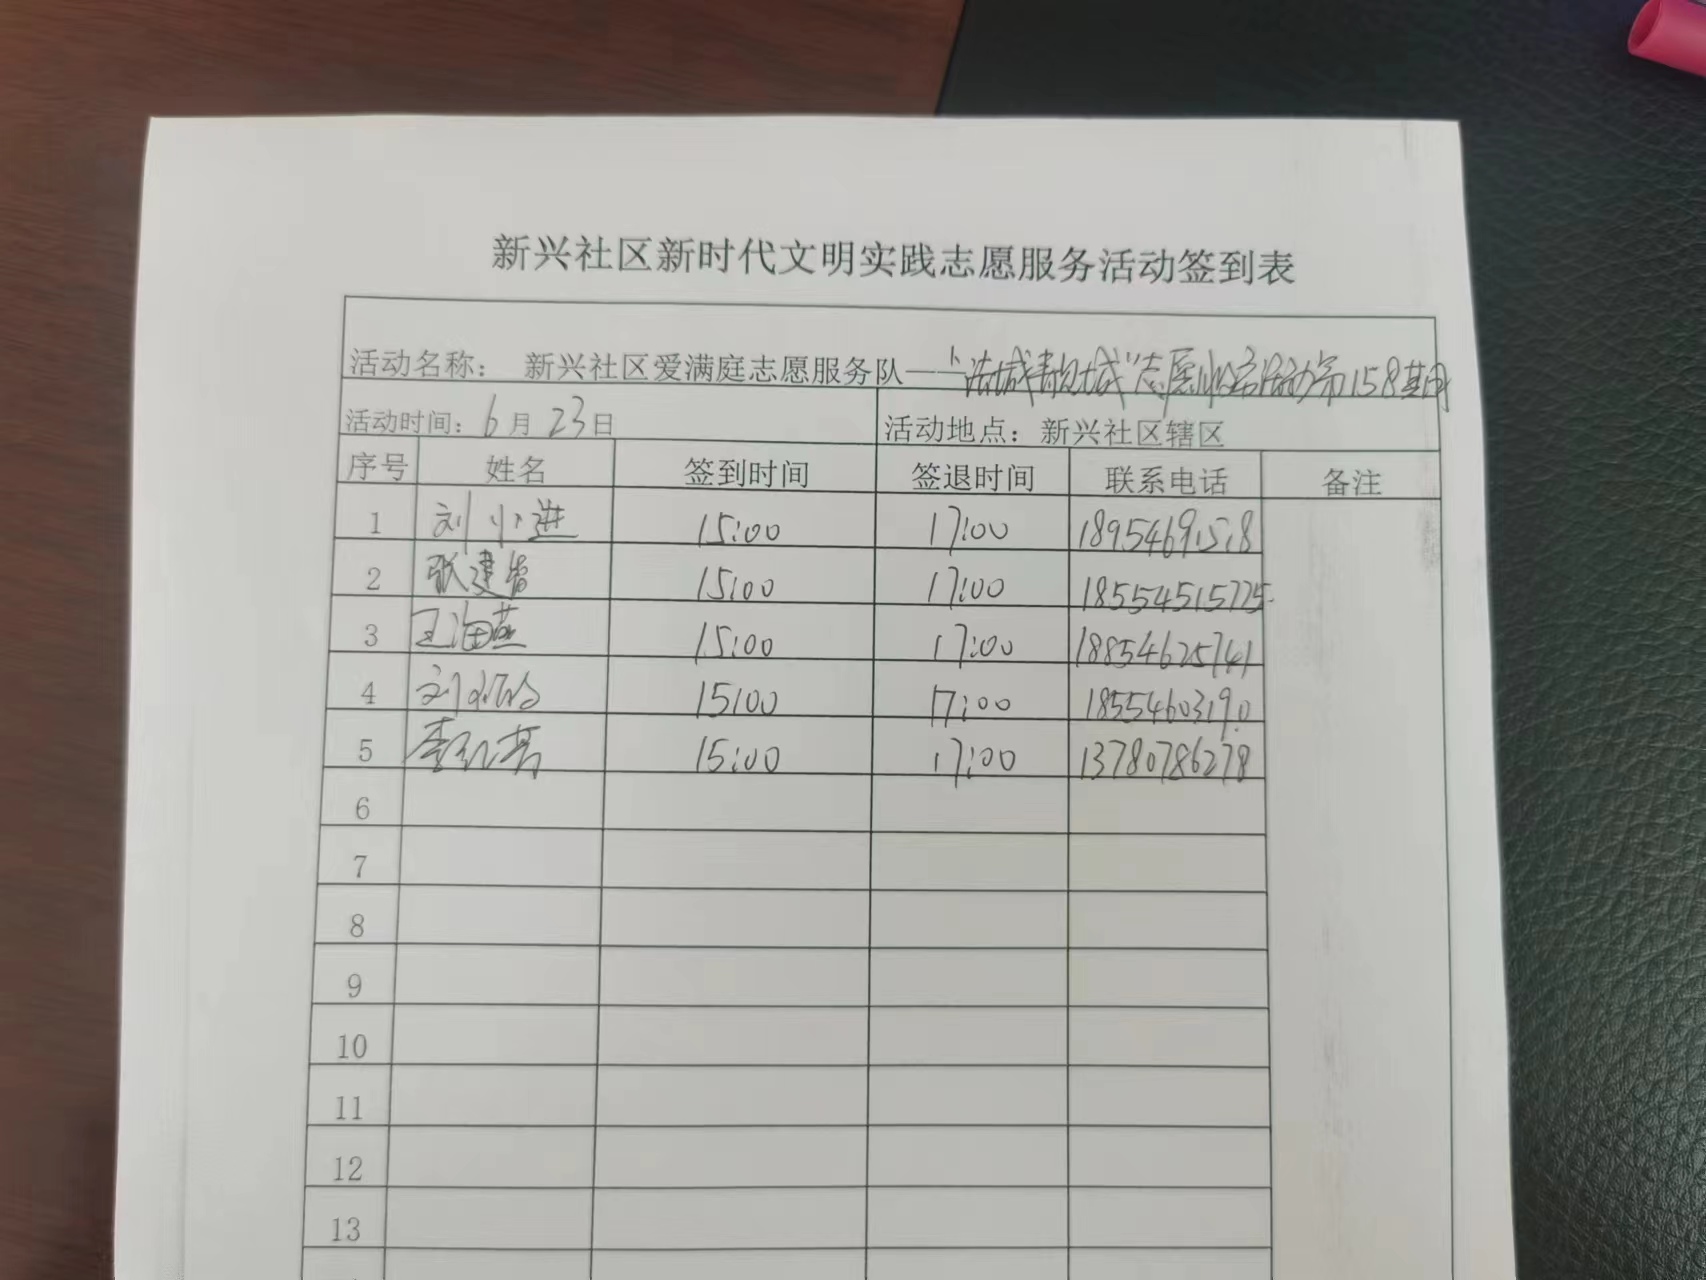 新兴社区新时代文明实践志愿服务活动签到表
活动名称： 新兴社区爱满庭志愿服务队——“洁城靓城”志愿服务活动第158期
活动时间：6月23日 活动地点：新兴社区辖区
序号 姓名 签到时间 签退时间 联系电话 备注
1 刘小进 15:00 17:00 18954691518
2 张建 15:00 17:00 18554515725
3 王海燕 15:00 17:00 18854625741
4 刘 15:00 17:00 18554603190
5 李红 15:00 17:00 13780786278
6
7
8
9
10
11
12
13